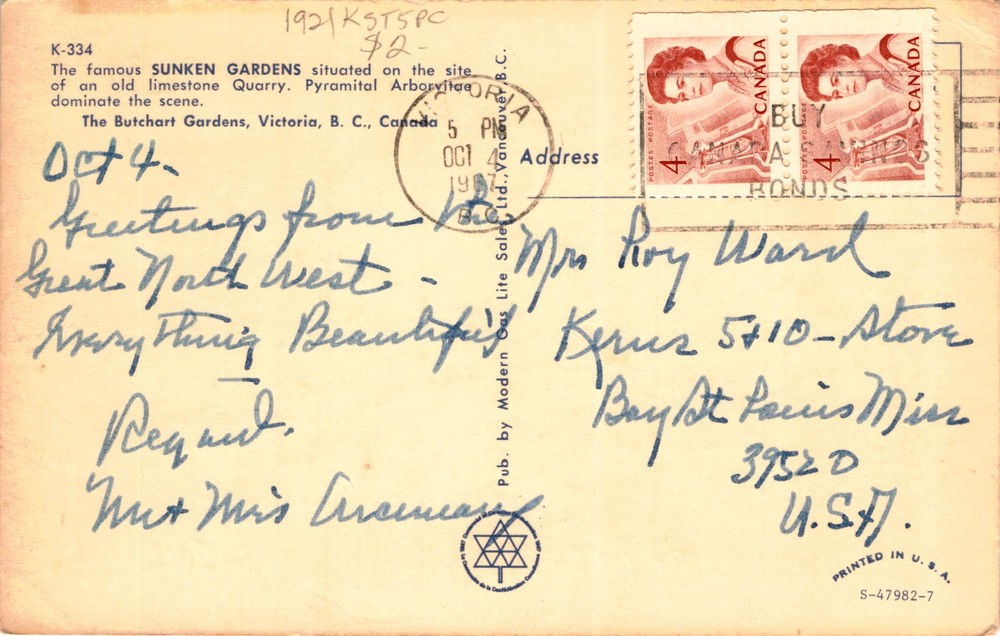 1921/KST5PC
$2-
K-334
The famous SUNKEN GARDENS situated on the site
of an old limestone Quarry. Pyramital Arborvitae
dominate the scene.
The Butchart Gardens, Victoria, B. C., Canada
VICTORIA
5 PM
OCT 4
1967
B.C.
CANADA
POSTES POSTAGE
4
CANADA
4
BUY
CANADA SAVINGS
BONDS
Address
Oct 4-
Greetings from the
Great North West -
Everything Beautiful
Regard.
Mr + Mrs
Mrs Roy Ward
Kerns 5+10 - Store
Bay St Louis Miss
39520
U.S.A.
Pub. by Modern Gas Lite Sales Ltd., Vancouver B.C.
PRINTED IN U. S. A.
S-47982-7